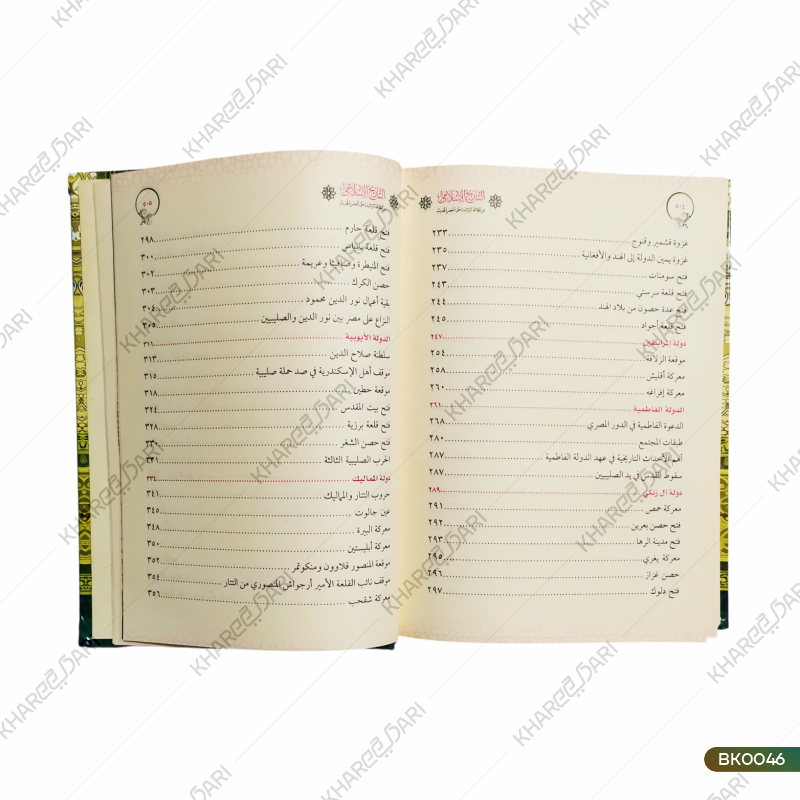 ٥٠٤
التاريخ الإسلامي
غزوة قشمير وقنوج ٢٣٣
غزوة يمين الدولة إلى الهند والأفغانية ٢٣٥
فتح سومنات ٢٣٧
فتح قلعة سرستي ٢٤٣
فتح عدة حصون من بلاد الهند ٢٤٤
فتح قلعة أجواد ٢٤٥
دولة المرابطين ٢٤٧
موقعة الزلاقة ٢٥٤
معركة أقليش ٢٥٨
معركة إفراغه ٢٦٠
الدولة الفاطمية ٢٦١
الدعوة الفاطمية في الدور المصري ٢٦٨
طبقات المجتمع ٢٨٠
أهم الأحداث التاريخية في عهد الدولة الفاطمية ٢٨٧
سقوط القدس في يد الصليبيين ٢٨٧
دولة آل زنكي ٢٨٩
معركة حمص ٢٩١
فتح حصن بعرين ٢٩٢
فتح مدينة الرها ٢٩٣
معركة يغري ٢٩٥
حصن عزاز ٢٩٦
فتح دلوك ٢٩٧
٥٠٥
التاريخ الإسلامي
فتح قلعة حارم ٢٩٨
فتح قلعة بانياس ٣٠٠
فتح المنيطرة وصافيثا وعريمة ٣٠٢
حصن الكرك ٣٠٣
بقية أعمال نور الدين محمود ٣٠٤
النزاع على مصر بين نور الدين والصليبيين ٣٠٥
الدولة الأيوبية ٣١١
سلطنة صلاح الدين ٣١٣
موقف أهل الإسكندرية في صد حملة صليبية ٣١٥
موقعة حطين ٣١٨
فتح بيت المقدس ٣٢٤
فتح قلعة برزية ٣٢٨
فتح حصن الشغر ٣٣٠
الحرب الصليبية الثالثة ٣٣١
دولة المماليك ٣٣٤
حروب التتار والمماليك ٣٤١
عين جالوت ٣٤٥
معركة البيرة ٣٤٨
معركة أبليستين ٣٥٠
موقعة المنصور قلاوون ومنكوتمر ٣٥٢
موقف نائب القلعة الأمير أرجواش المنصوري من التتار ٣٥٤
معركة شقحب ٣٥٦
BK0046